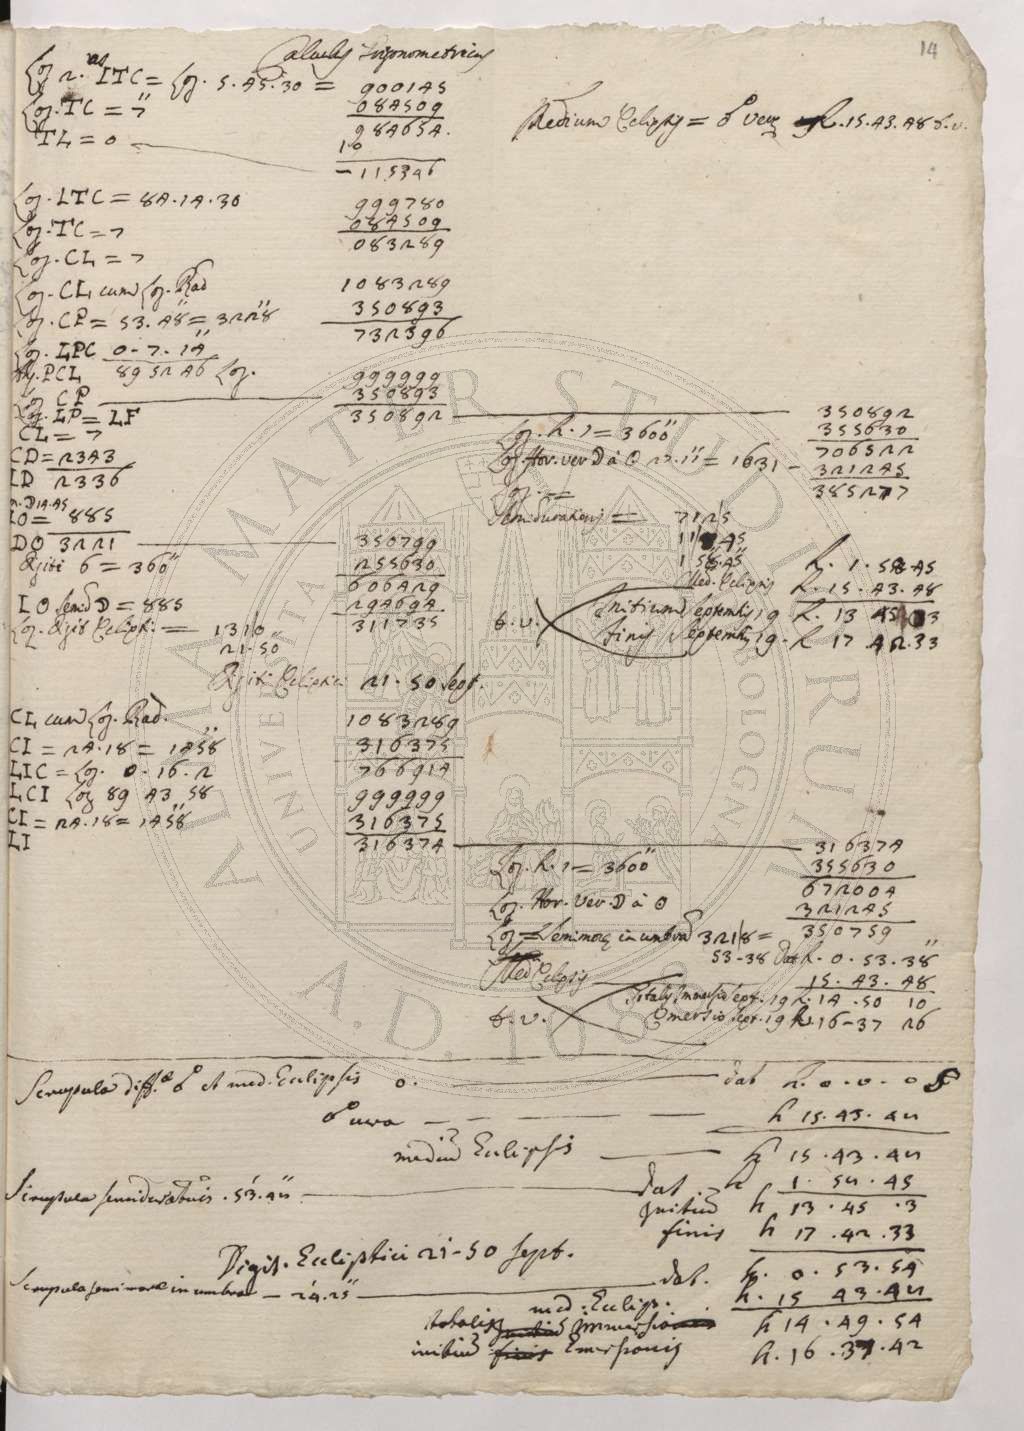 14
Calculus Trigonometricus
Log. ITC = Log. 5.45.30 = 900145
Log. TC = 7'' 084509
98465A.
TL = 0 10
- 115346
Medium Eclipsis = ☍ vera h. 15.43.48 t.v.
Log. LTC = 84.14.30 999780
Log. TC = 7 084509
Log. CL = 7 083289
Log. CL cum Log. Rad 1083289
Log. CP = 53.48'' = 3228'' 350893
732396
Log. LPC 0-7-14''
PCL 89 52 46 Log. 999999
Log. CP 350893
Log. LP = LF 350892 350892
CL = 7
Log. h. 1 = 3600'' 355630
706522
CD = 2343
Log. Hor. ver. D à ☉ 27.11'' = 1631 - 321245
LD 2336
Log. = 385277
D 14.45
LO = 885
Semidurationis = 7125
DO 3221 350799
118.45
Digiti 6 = 360'' 255630
1 58'.45'' h. 1.58.45
606429
Med. Eclipsis h. 15.43.48
LO Semid. D = 885 294694
Initium Septemb. 19 h. 13 45 03
t.v.
Log. Digit Eclipti. = 1310 311735
Finis Septemb. 19. h 17 42.33
21.50
Digiti Ecliptici 21.50 Sept.
CL cum Log. Rad. 1083289
CI = 24.18 = 1458'' 316375
LIC = Log. 0.16.2 766914
LCI Log 89 43 58 999999
CI = 24.18 = 1458'' 316375
LI 316374 316374
Log. h. 1 = 3600'' 355630
672004
Log. Hor. Ver. D à ☉ 321245
Log = Semimorae in umbra 3218 = 350759
53-38 Dat h. 0.53.38''
Med Eclipsis 15.43.48
Totalis Immersio Sept. 19 h. 14.50 10
t.v.
Emersio Sept. 19 h. 16-37 26
Scrupula diff.ae ☍ et med. Ecclipsis 0. dat h. 0.0.0
☍ vera h 15.43.42
mediu Ecclipsis h 15.43.42
Scrupula semidurationis. 53'.42'' dat h 1.54.45
Initiu h 13.45.3
finis h 17.42.33
Digit. Ecliptici 21-50 Sept.
Scrupula semi morae in umbra - 24'.25'' dat. h. 0.53.54
med. Eclips. h. 15 43.42
totalis immersio h 14.49.54
initiu Emersionis h. 16.37.42
ALMA MATER STUDIORUM
UNIVERSITÀ BOLOGNA
A.D. 1088